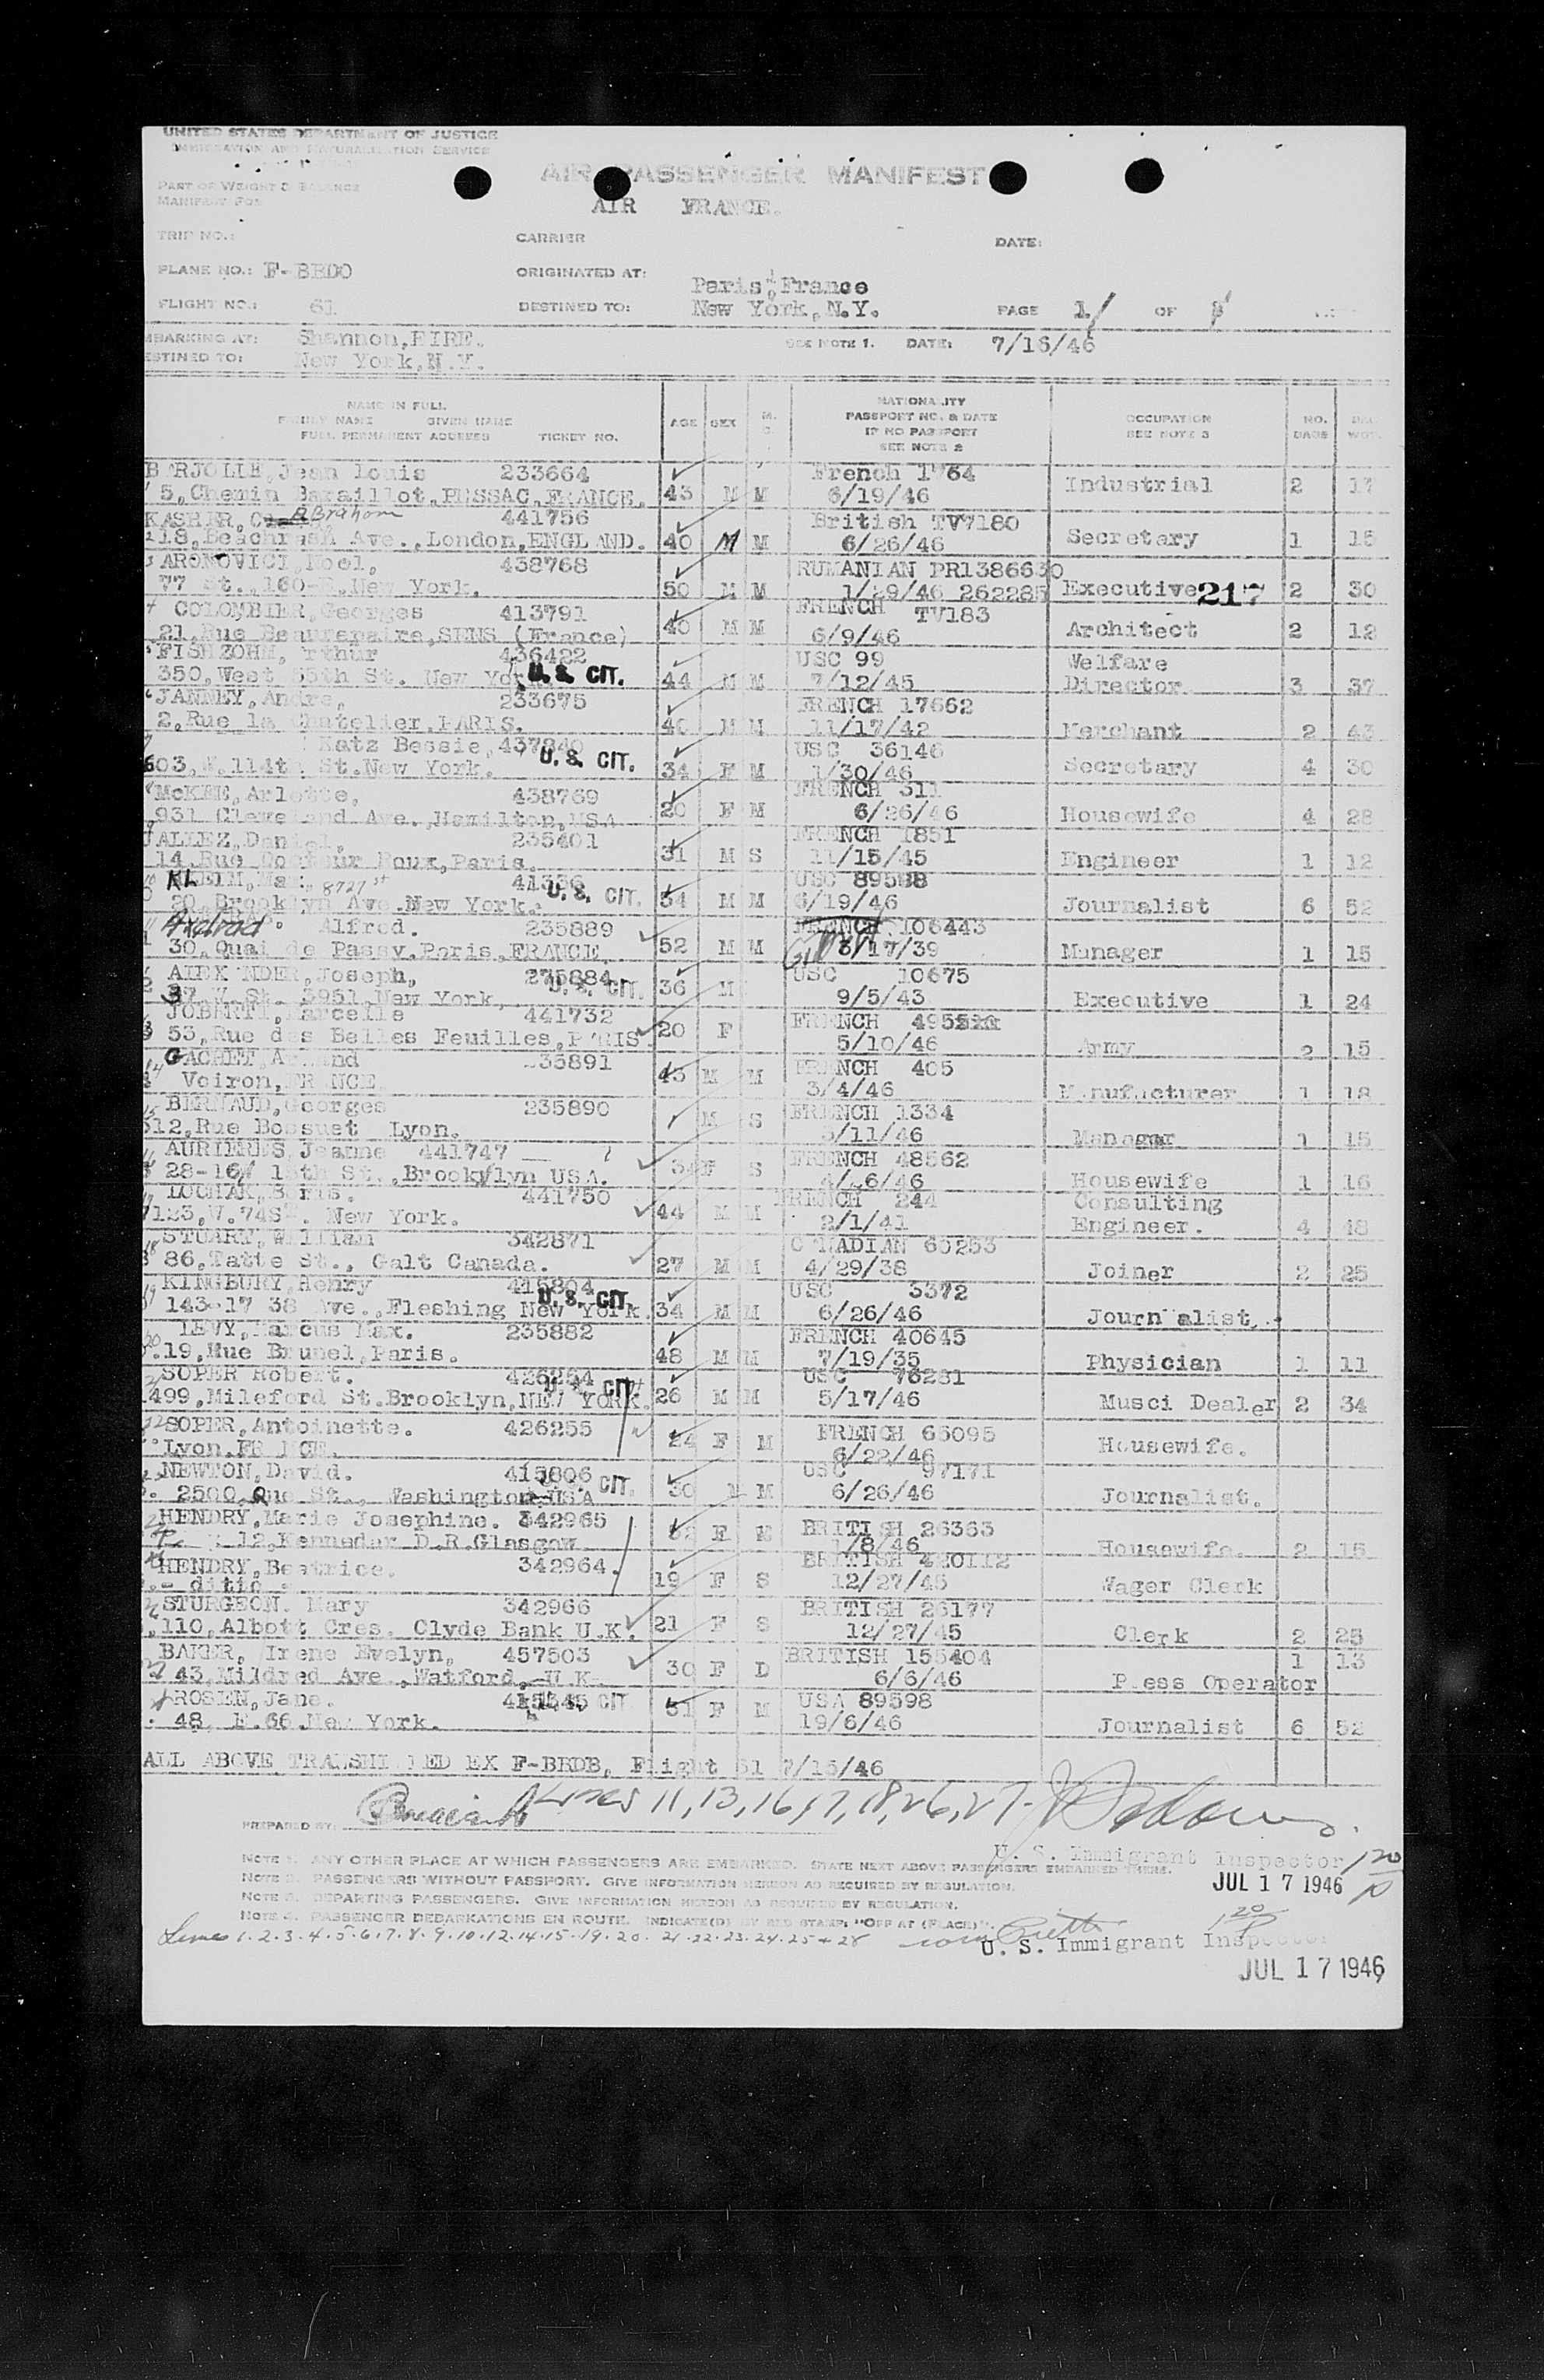 UNITED STATES DEPARTMENT OF JUSTICE
IMMIGRATION AND NATURALIZATION SERVICE
AIR PASSENGER MANIFEST
PART OF WEIGHT & BALANCE
MANIFEST FOR
AIR FRANCE.
TRIP NO.: CARRIER DATE:
PLANE NO.: F-BEDO ORIGINATED AT: Paris, France
FLIGHT NO.: 61 DESTINED TO: New York, N.Y. PAGE 1 OF
EMBARKING AT: Shannon, EIRE. SEE NOTE 1. DATE: 7/16/46
ESTINED TO: New York, N.Y.
NAME IN FULL
FAMILY NAME GIVEN NAME
FULL PERMANENT ADDRESS TICKET NO. AGE SEX M. NATIONALITY PASSPORT NO. & DATE IF NO PASSPORT SEE NOTE 2 OCCUPATION SEE NOTE 3 NO. BAGS WGT.
BARJOLLE, Jean Louis 233664 French
5, Chemin Baraillot, PESSAC, FRANCE. 43 M M 6/19/46 Industrial 2 17
Abraham 441756 British TV7180
18, Beachrash Ave., London, ENGLAND. 40 M M 6/26/46 Secretary 1 15
ARONOVICI, Noel, 438768 RUMANIAN PR1386630
77 St., 160-E. New York. 50 M M 1/29/46 262285 Executive 217 2 30
COLOMBIER, Georges 413791 FRENCH TV183
21, Rue Beaurepaire, SENS (France) 40 M M 6/9/46 Architect 2 12
FISHZOHN, Arthur 436422 USC 99 Welfare
350, West 55th St. New York U. S. CIT. 44 M M 7/12/45 Director 3 37
JANNEY, Andre, 233675 FRENCH 17662
2, Rue la Chatelier, PARIS. 40 M M 11/17/42 Merchant 2 43
Katz Bessie, 437840 USC 36146
603, W. 114th St. New York. U. S. CIT. 34 F M 1/30/46 Secretary 4 30
McKEE, Arlette, 438769 FRENCH 311
931 Cleveland Ave., Hamilton, USA 20 F M 6/26/46 Housewife 4 28
JALLEZ, Daniel, 235401 FRENCH 1851
14, Rue Docteur Roux, Paris. 31 M S 11/15/45 Engineer 1 12
KLEIN, Max USC 89588
20, Brooklyn Ave. New York. U. S. CIT. 34 M M 6/19/46 Journalist 6 52
Axelrad Alfred. 235889 FRENCH 106443
30, Quai de Passy, Paris, FRANCE. 52 M M 3/17/39 Manager 1 15
ALEXANDER, Joseph, 235884 USC 10675
37 W. St. 3951, New York, U. S. CIT. 36 M 9/5/43 Executive 1 24
JOBERTI, Marcelle 441732 FRENCH
53, Rue des Belles Feuilles, PARIS 20 F 5/10/46 Army 2 15
GACHET, Armand 35891 FRENCH 405
Voiron, FRANCE 45 M M 3/4/46 Manufacturer 1 18
BERNAUD, Georges 235890 FRENCH 1334
12, Rue Bossuet Lyon. M S 3/11/46 Manager 1 15
AURIERES, Jeanne 441747 FRENCH 48562
28-16, 15th St., Brooklyn USA. 34 F S 4/26/46 Housewife 1 16
LOCHAK, Boris. 441750 FRENCH 244 Consulting
123, W. 74St. New York. 44 M M 2/1/41 Engineer. 4 48
STUART, William 342871 CANADIAN 60253
86, Tatte St., Galt Canada. 27 M M 4/29/38 Joiner 2 25
KINGBURY, Henry 415804 USC 3372
143-17 38 Ave., Fleshing New York. U. S. CIT. 34 M M 6/26/46 Journalist.
LEVY, Marcus Max. 235882 FRENCH 40645
19, Rue Brunel, Paris. 48 M M 7/19/35 Physician 1 11
SOPER Robert. 426254 USC 76281
499, Mileford St. Brooklyn, NEW YORK. U. S. CIT 26 M M 5/17/46 Musci Dealer 2 34
SOPER, Antoinette. 426255 FRENCH 65095
Lyon. FRANCE. 24 F M 6/22/46 Housewife.
NEWTON, David. 415806 USC 97171
2500, Que St., Washington USA CIT. 30 M 6/26/46 Journalist.
HENDRY, Marie Josephine. 342965 BRITISH 26363
12, Kennedar D.R. Glasgow 52 F M 1/8/46 Housewife. 2 15
HENDRY, Beatrice. 342964. BRITISH
- ditto - 19 F S 12/27/45 Wager Clerk
STURGEON. Mary 342966 BRITISH 26177
110, Albott Cres. Clyde Bank U.K. 21 F S 12/27/45 Clerk 2 25
BAKER, Irene Evelyn, 457503 BRITISH 155404 1 13
43, Mildred Ave., Watford, U.K. 30 F D 6/6/46 Press Operator
ROSEN, Jane. CIT. USA 89598
48, E. 66 New York. 31 F M 19/6/46 Journalist 6 52
ALL ABOVE TRANSHIPPED EX F-BEDB, Flight 61 7/15/46
Lines 11, 13, 16, 17, 18, 26, 27.
PREPARED BY:
U. S. Immigrant Inspector
NOTE 1. ANY OTHER PLACE AT WHICH PASSENGERS ARE EMBARKED. STATE NEXT ABOVE PASSENGERS EMBARKED THERE.
NOTE 2. PASSENGERS WITHOUT PASSPORT. GIVE INFORMATION HEREON AS REQUIRED BY REGULATION.
JUL 17 1946
NOTE 3. DEPARTING PASSENGERS. GIVE INFORMATION HEREON AS REQUIRED BY REGULATION.
NOTE 4. PASSENGER DEBARKATIONS EN ROUTE. INDICATE(D) BY RED STAMP: "OFF AT (PLACE)".
Lines 1.2.3.4.5.6.7.8.9.10.12.14.15.19.20.21.22.23.24.25+28
U. S. Immigrant Inspector
JUL 17 1946